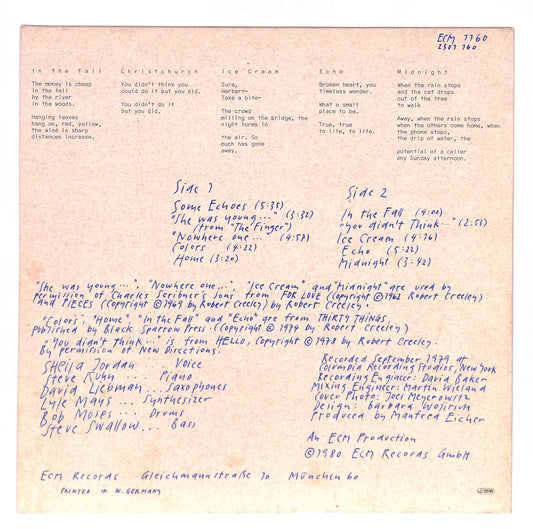 ECM 1160
2301 160
In the Fall
The money is cheap
in the fall
by the river
in the woods.
Hanging leaves
hang on, red, yellow,
the wind is sharp
distances increase.
Christchurch
You didn't think you
could do it but you did.
You didn't do it
but you did.
Ice Cream
Sure,
Herbert-
Take a bite-
The crowd
milling on the bridge, the
night forms in
the air. So
much has gone
away.
Echo
Broken heart, you
timeless wonder.
What a small
place to be.
True, true
to life, to life.
Midnight
When the rain stops
and the cat drops
out of the tree
to walk
Away, when the rain stops
when the others come home, when
the phone stops,
the drip of water, the
potential of a caller
any Sunday afternoon.
Side 1
Some Echoes (5:35)
"She was young..." (3:32)
(from "The Finger")
"Nowhere one..." (4:57)
Colors (4:22)
Home (3:20)
Side 2
In the Fall (4:00)
"You didn't Think..." (2:55)
Ice Cream (4:16)
Echo (5:22)
Midnight (3:42)
"She was young...", "Nowhere one...", "Ice Cream" and "Midnight" are used by
permission of Charles Scribner's Sons from FOR LOVE (Copyright ©1962 Robert Creeley)
and PIECES (Copyright ©1969 by Robert Creeley) by Robert Creeley.
"Colors", "Home", "In the Fall" and "Echo" are from THIRTY THINGS,
published by Black Sparrow Press. (Copyright © 1974 by Robert Creeley)
"You didn't think..." is from HELLO, Copyright ©1978 by Robert Creeley.
By permission of New Directions.
Sheila Jordan ... Voice
Steve Kuhn ... Piano
David Liebman ... Saxophones
Lyle Mays ... Synthesizer
Bob Moses ... Drums
Steve Swallow ... Bass
Recorded September 1979 at
Columbia Recording Studios, New York
Recording Engineer: David Baker
Mixing Engineer: Martin Wieland
Cover Photo: Joel Meyerowitz
Design: Barbara Wojirsch
Produced by Manfred Eicher
An ECM Production
©1980 ECM Records GmbH
ECM Records Gleichmannstraße 10 München 60
PRINTED IN W. GERMANY